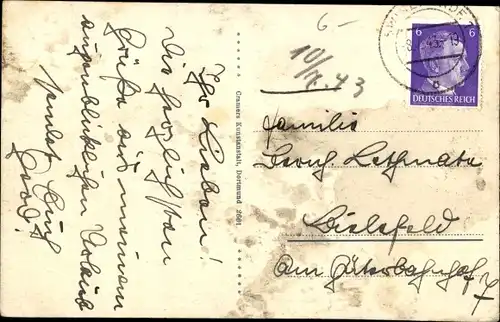 Ihr Lieben!
Die herzlichsten
Grüße aus meinem
augenblicklichen Urlaub
sendet Euch
Cramers Kunstanstalt, Dortmund 2661
6-
10/7. 43
6 6
DEUTSCHES REICH
Familie
Georg Lethmate
Bielefeld
Am Güterbahnhof 7